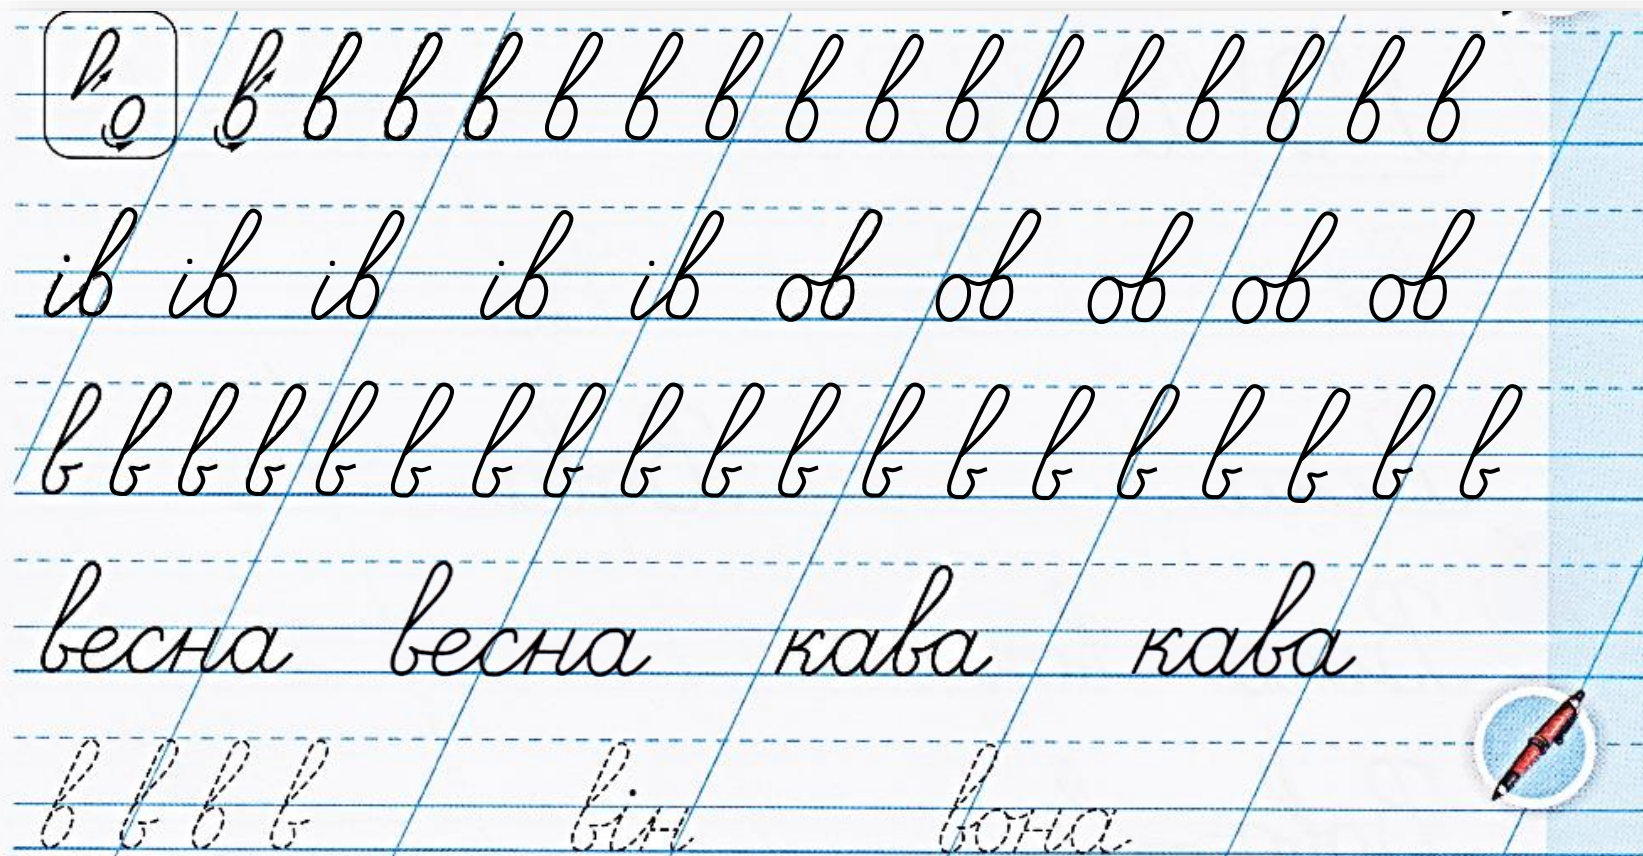 в в в в в в в в в в в в в в в в в
ів ів ів ів ів ов ов ов ов ов
в в в в в в в в в в в в в в в в в в в
весна весна кава кава
в в в в він вона